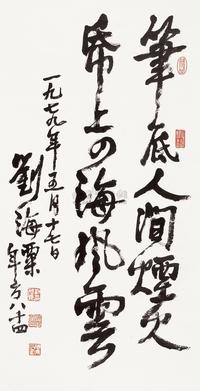 筆底人間煙火
帋上四海風雲
一九七九年五月十七日
劉海粟
年方八十四